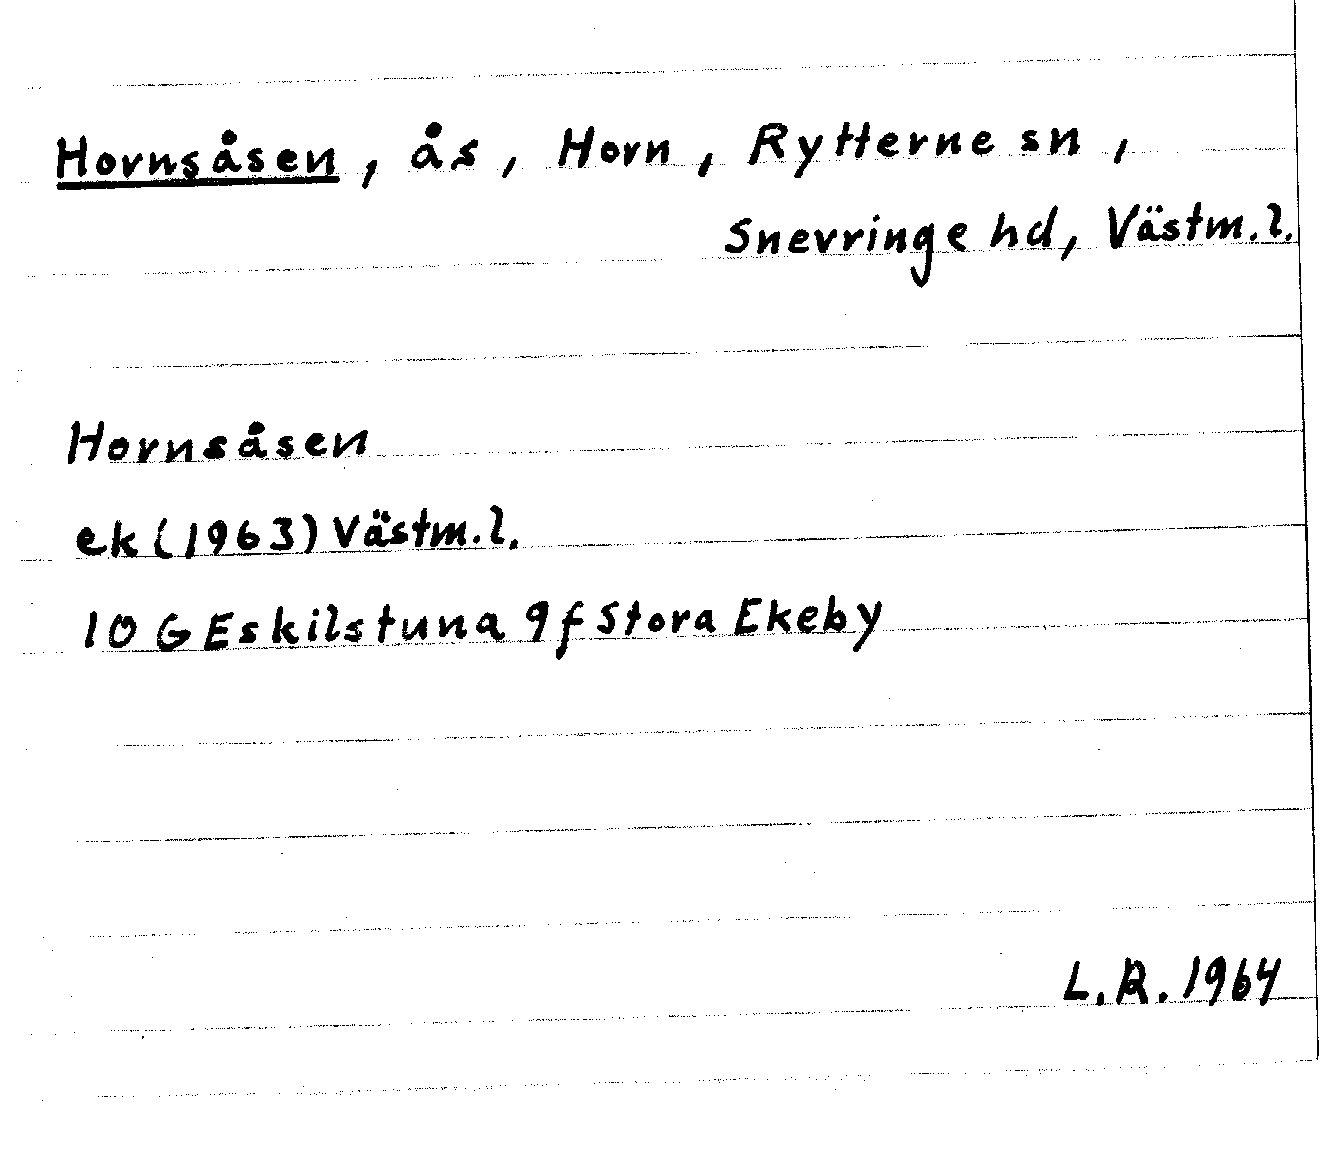 Hornsåsen, ås, Horn, Rytterne sn,
Snevringe hd, Västm.l.
Hornsåsen
ek (1963) Västm.l.
10 G Eskilstuna 9f Stora Ekeby
L.R. 1964